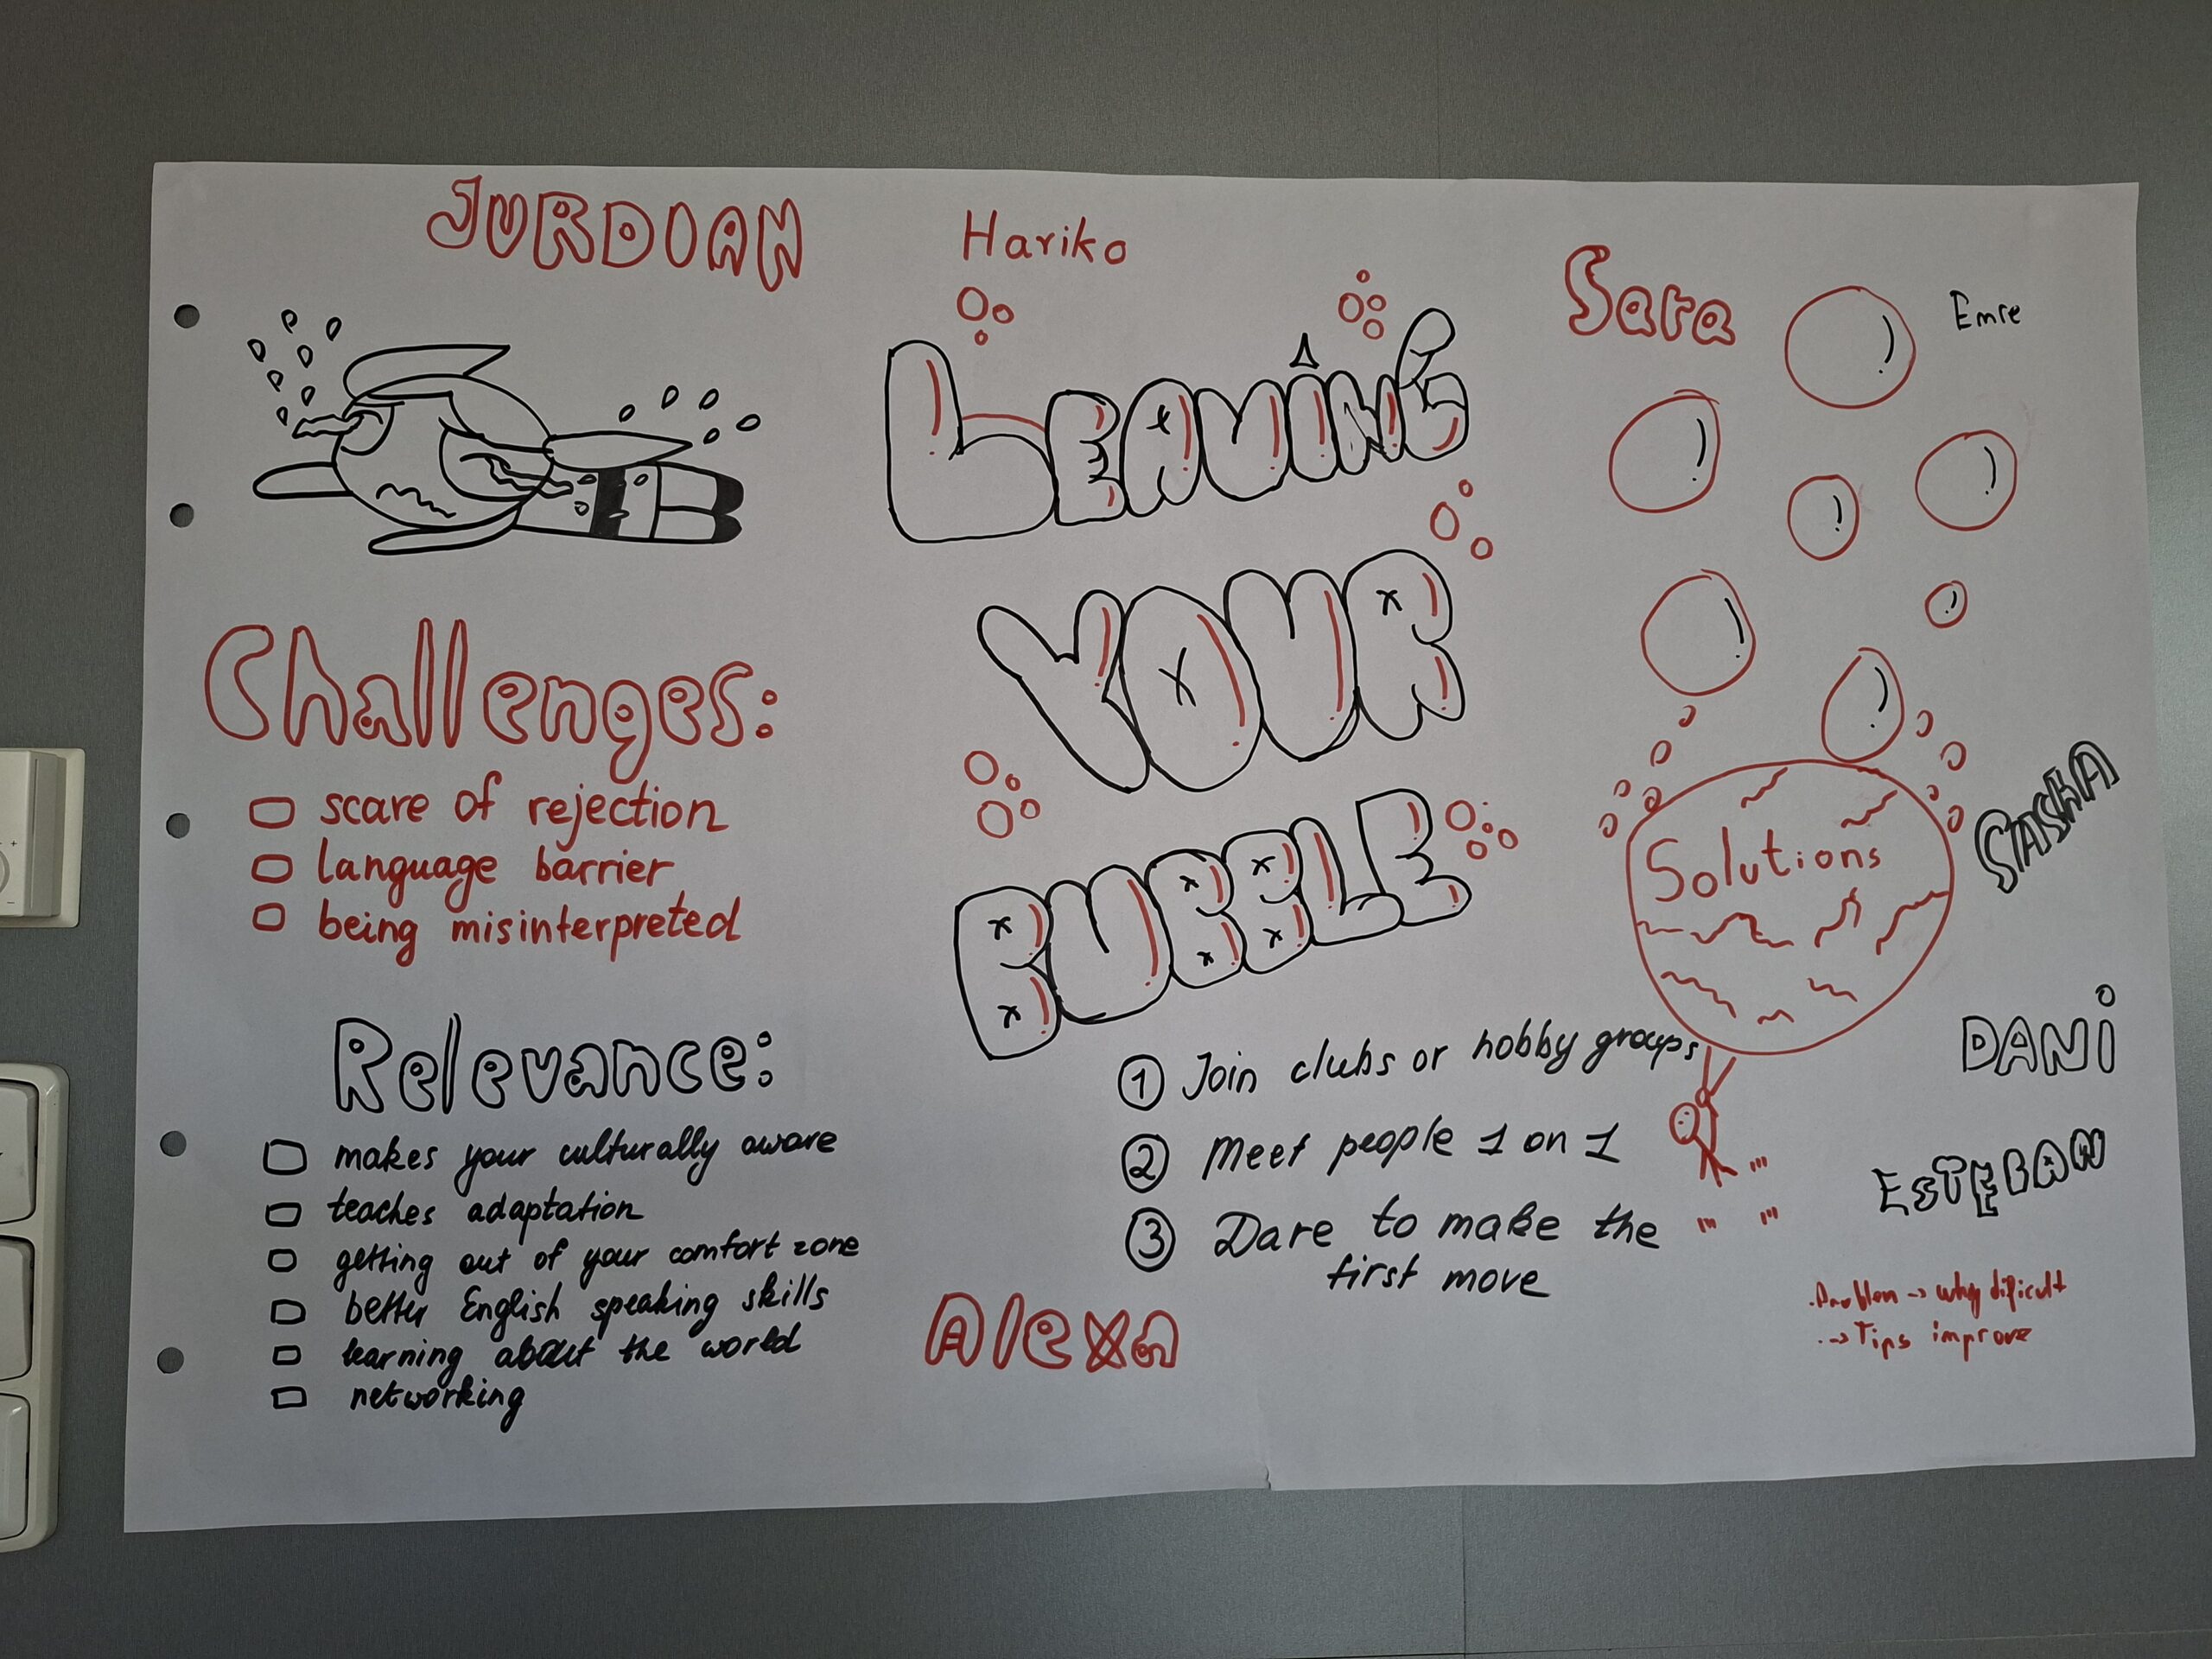 JURDIAN
Hariko
Sara
Emre
LEAVING
YOUR
BUBBLE
Challenges:
scare of rejection
language barrier
being misinterpreted
Relevance:
makes your culturally aware
teaches adaptation
getting out of your comfort zone
better English speaking skills
learning about the world
networking
Solutions
1 Join clubs or hobby groups
2 Meet people 1 on 1
3 Dare to make the
first move
SASHA
DANI
ESTEBAN
Alexa
.Problem -> why dificult
.-> Tips improve